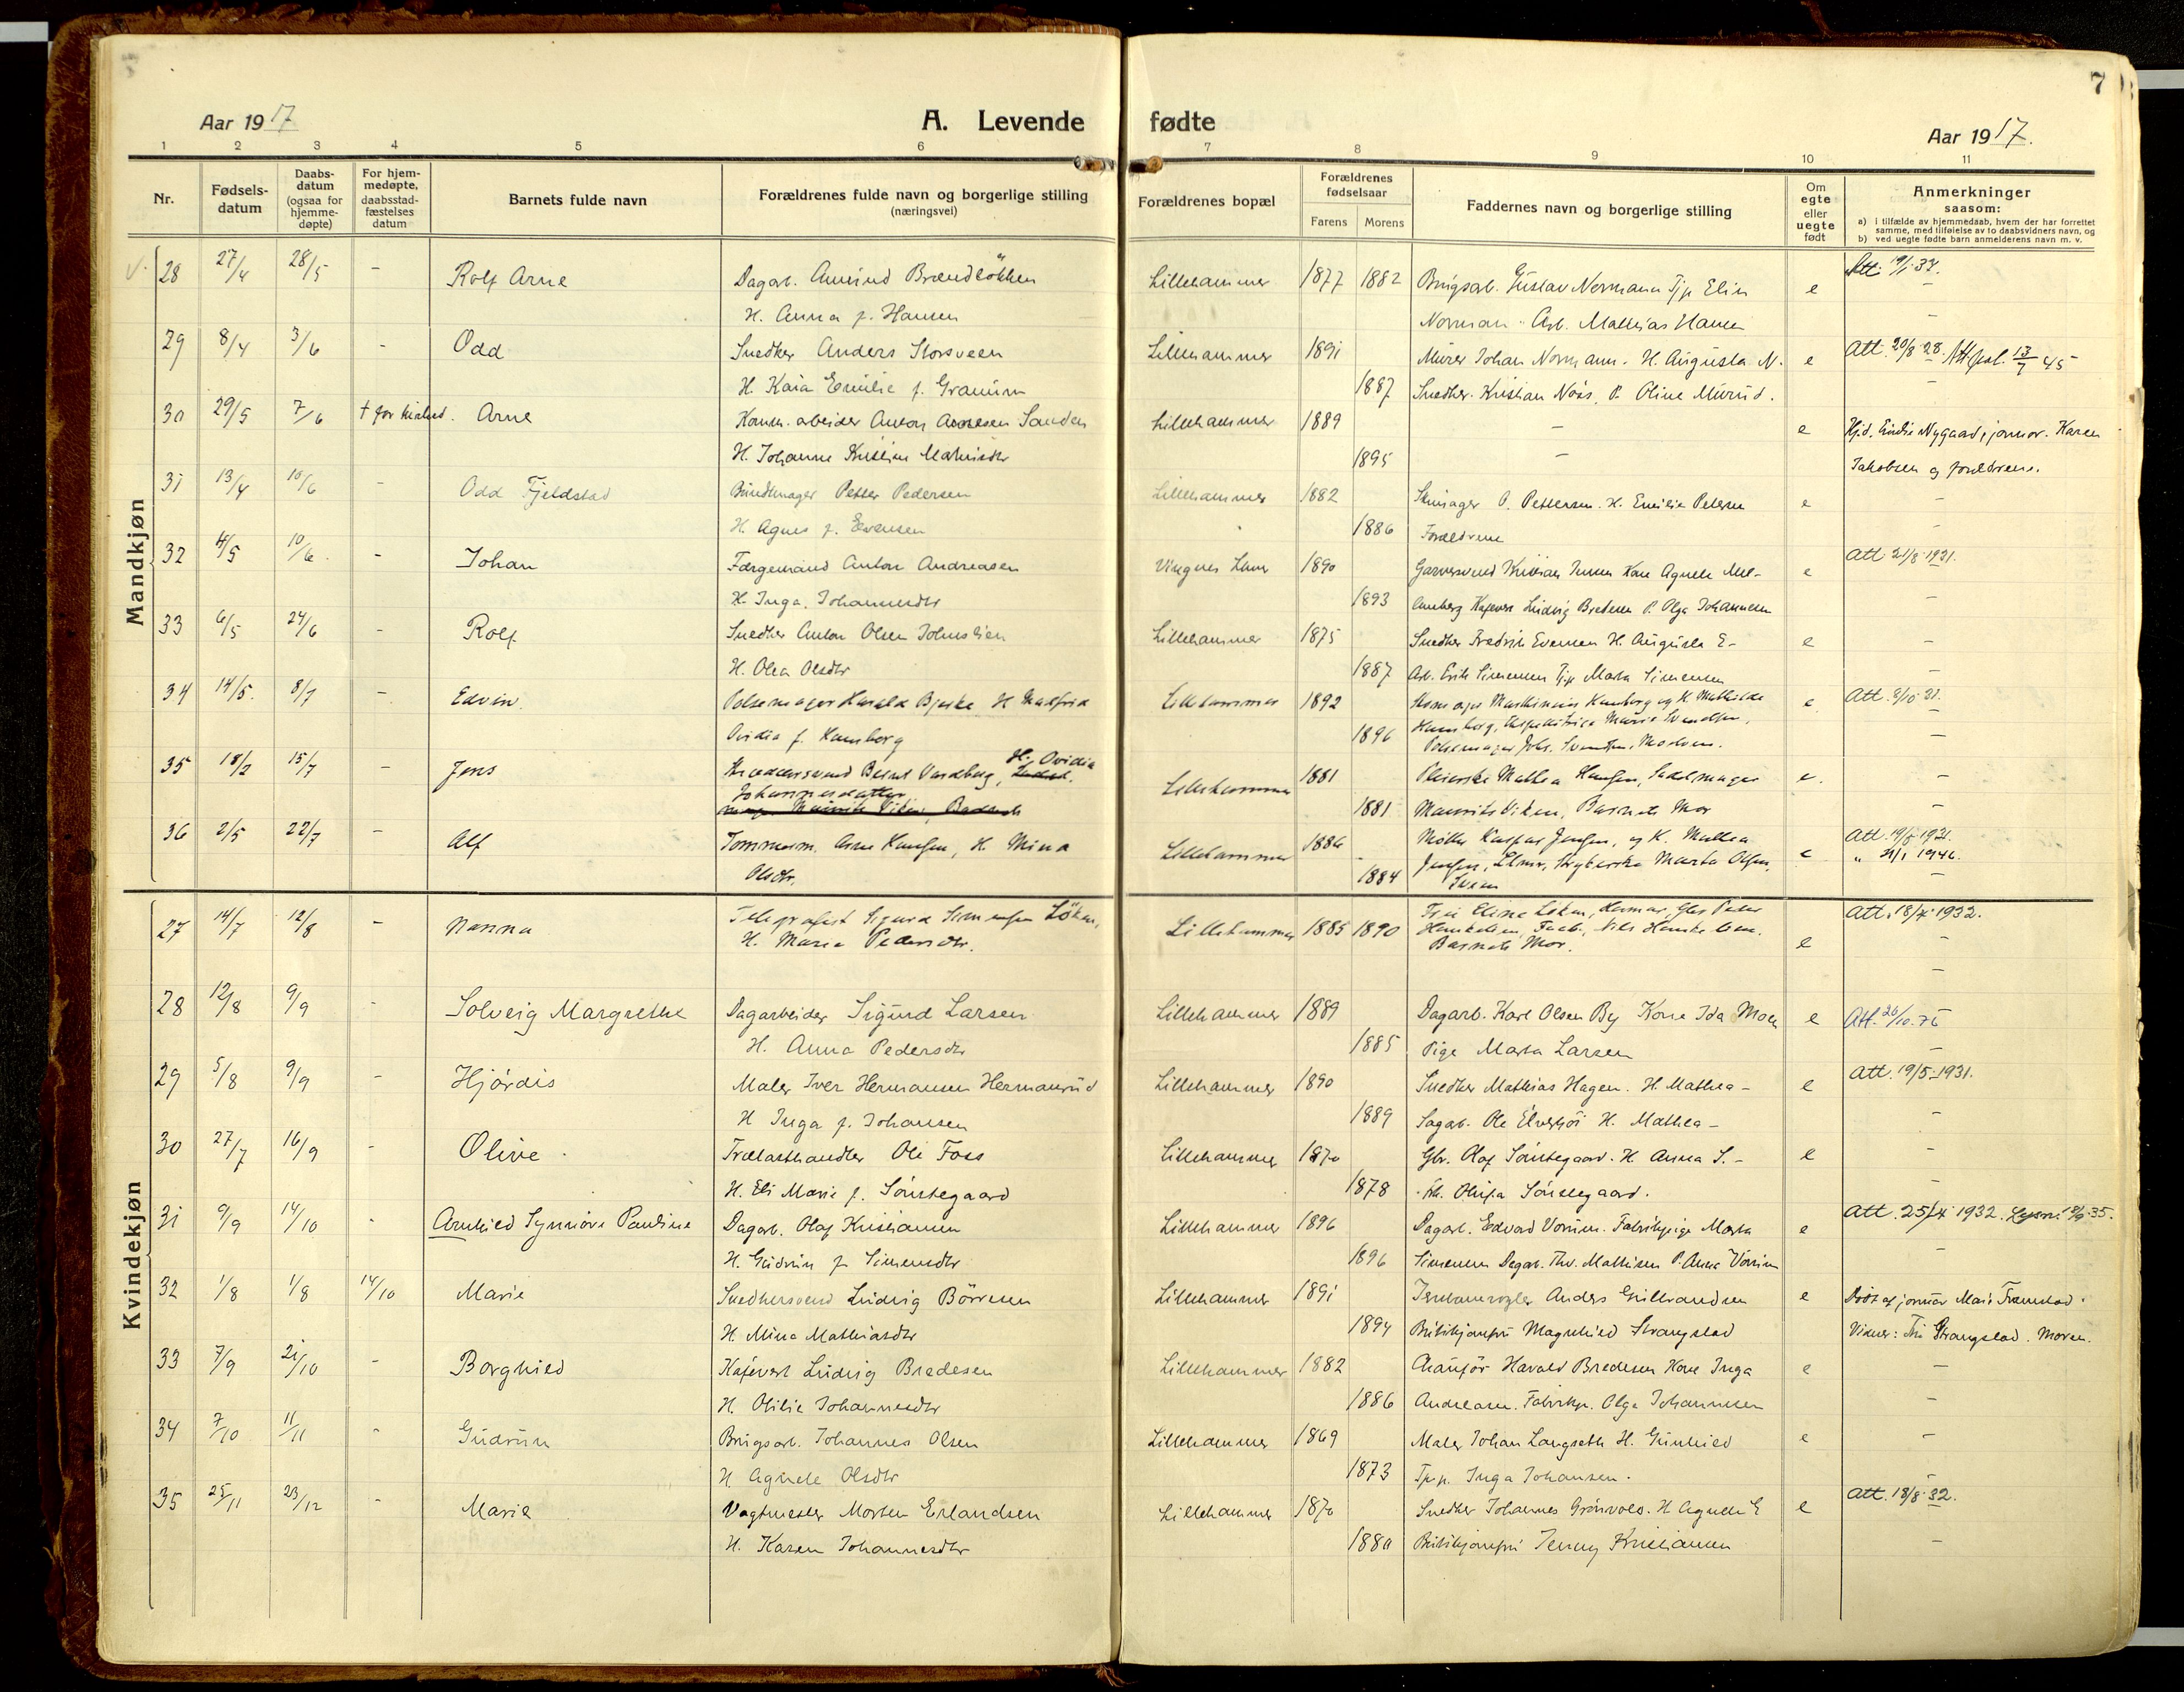 7
Aar 1917
A. Levende fødte
Aar 1917.
1 2 3 4 5 6 7 8 9 10 11
Nr.
Fødsels-
datum
Daabs-
datum
(ogsaa for
hjemme-
døpte)
For hjem-
medøpte,
daabsstad-
fæstelses
datum
Barnets fulde navn
Forældrenes fulde navn og borgerlige stilling
(næringsvei)
Forældrenes bopæl
Forældrenes
fødselsaar
Farens Morens
Faddernes navn og borgerlige stilling
Om
egte
eller
uegte
født
Anmerkninger
saasom:
a) i tilfælde av hjemmedaab, hvem der har forrettet
samme, med tilføielse av to daabsvidners navn, og
b) ved uegte fødte barn anmelderens navn m. v.
Mandkjøn
28 27/4 28/5 - Rolf Arne Dagarb. Brændløkken Lillehammer 1877 1882 Brugsarb. Gustav Normann Tjp Elin e Att. 19/1 37.
H. Anna f. Hansen Norman Arb. Mathias Hansen -
29 8/4 3/6 - Odd Snedker Anders Storsveen Lillehammer 1891 Murer Johan Normann. H. Augusta N. e Att. 20/8 28. Att 13/7 45
H. Kaia Emilie f. Granum 1887 Snedker. Kristian P. Oline Murud. -
30 29/5 7/6 † for Arne Komm. arbeider Anton Sanden Lillehammer 1889 - e Hjd. Nygaard, jormor. Karen
H. Johanne Kristine 1895 - Jakobsen og forældrene.
31 13/4 10/6 - Odd Fjeldstad Buntmager Petter Pedersen Lillehammer 1882 P. Pettersen. H. Emilie Petersen e -
H. Agnes f. Evensen 1886 Forældrene -
32 4/5 10/6. - Johan Færgemand Anton Andreasen Vingnes 1890 Garversvend Kristian Kone Agnete e Att. 21/8 1931.
H. Inga. Johannesdtr 1893 Ludvig Bredesen P. Olga Johannesen -
33 6/5 24/6 - Rolf Snedker Anton Olsen Lillehammer 1875 Snedker Fredrik Evensen H. Augusta E- e -
H. Olea Olsdtr 1887 Arb. Erik Simensen Tjp Marta Simensen -
34 14/5. 8/7 - Edvin. Pølsemager Harald Bjerke H Lillehammer 1892 e Att. 8/10 31.
Ovidia f. Hamborg 1896 Hamborg, Marie Svendsen, -
Pølsemager Joh. Svendsen,
35 18/2 15/7 Jens H. Ovidia
Johannesdatter Lillehammer 1881 Mathea Hansen, Sadelmager e. -
1881 Maurits Viken, Barnets Mor -
36 2/5 22/7 - Alf Tømmerm. Arne Hansen, H. Mina Lillehammer 1886 Møller Kaspar Jensen, og K. Mathea e Att. 19/5 1931.
Olsdtr. 1884 Jensen, Marta Olsen, " 1946.
-
Kvindekjøn
27 14/7 12/8 - Nanna Telegrafist Sigurd Simensen Löken, Lillehammer 1885 1890 Frk Elise Löken, e Att. 18/4 1932.
H. Maria Pedersdtr. Barnets Mor. -
28 12/8 9/9 - Solveig Margrethe Dagarbeider Sigurd Larsen Lillehammer 1889 Dagarb. Karl Olsen By Kone Ida Moe e Att. 26/10.76
H. Anna Pedersdtr 1885 Pige Marta Larsen -
29 5/8 9/9 - Hjördis Maler Iver Hermansen Hermansrud Lillehammer 1890 Snedker Mathias Hagen. H. Mathea- e Att. 19/5 1931.
H Inga f. Johansen 1889 Sagarb. Ole H. Mathea- -
30 27/7 16/9 - Olive. Trælasthandler Ole Foss Lillehammer 1870 Gbr. Olaf Sönstegaard. H. Anna S.- e -
H. Eli Marie f. Sönstegaard 1878 Sönstegaard. -
31 9/9 14/10 - Arnhild Synnöve Pauline Dagarb. Olaf Kristiansen Lillehammer 1896 Dagarb. Edvard. Fabrikpige Marta e Att. 25/4 1932. 35.
H. Gudrun f. Simensdtr 1896 Simensen Dagarb. Thv. Mathisen P. Anna -
32 1/8 1/8 14/10 Marie Snedkersvend Ludvig Börresen Lillehammer 1891 Anders Gulbrandsen e Döbt af jormor Mari
H. Mina Mathiasdtr 1894 Butikjomfru Magnhild Strangstad Vidner: Fru Strangstad. Moren.
33 7/9 21/10 - Borghild Kafevert Ludvig Bredesen Lillehammer 1882 Chaufför Harald Bredesen Kone Inga e -
H. Otilie Johannesdtr 1886 Andreasen. Fabrikp. Olga Johannesen -
34 7/10 11/11 - Gudrun Brugsarb. Johannes Olsen Lillehammer 1869 Maler Johan Langseth H. Gunhild e -
H. Agnete Olsdtr 1873 Tp.p. Inga Johansen. -
35 25/11 23/12 - Marie Vagtmester Morten Erlandsen Lillehammer 1870 Snedker Johannes Grönvold. H Agnete G e Att. 18/8 32.
H. Karen Johannesdtr 1880 Butikjomfru Jenny Kristiansen -